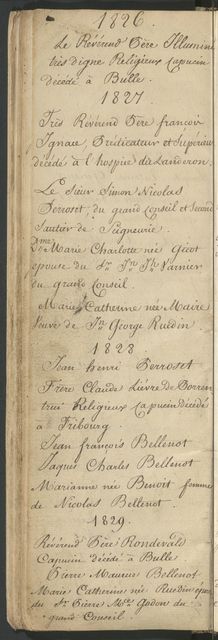 1826
Le Révérend Père Illuminé
très digne Religieux Capucin
décédé à Bulle.
1827.
Très Révérend Père françois
Ignace, Prédicateur et Supérieur
décédé à l'hospice du Landeron.
Le Sieur Simon Nicolas
Perroset, du grand Conseil et Second
Sautier de Seigneurie.
Dme Marie Charlotte née Gicot
épouse du Sr. Jn. Jh. Varnier
du grand Conseil.
Marie Catherine née Maire
Veuve de Jn. George Ruedin.
1828
Jean henri Perroset
Frère Claude Lièvre de Porren
trui Religieux Capucin décédé
à Fribourg.
Jean françois Bellenot
Jaques Charles Bellenot
Marianne née Benoit femme
de Nicolas Bellenot.
1829.
Révérend Père Rondevald
Capucin décédé à Bulle
Pierre Maurus Bellenot
Marie Catherine née Ruedin épouse
du Sr. Pierre du
grand Conseil